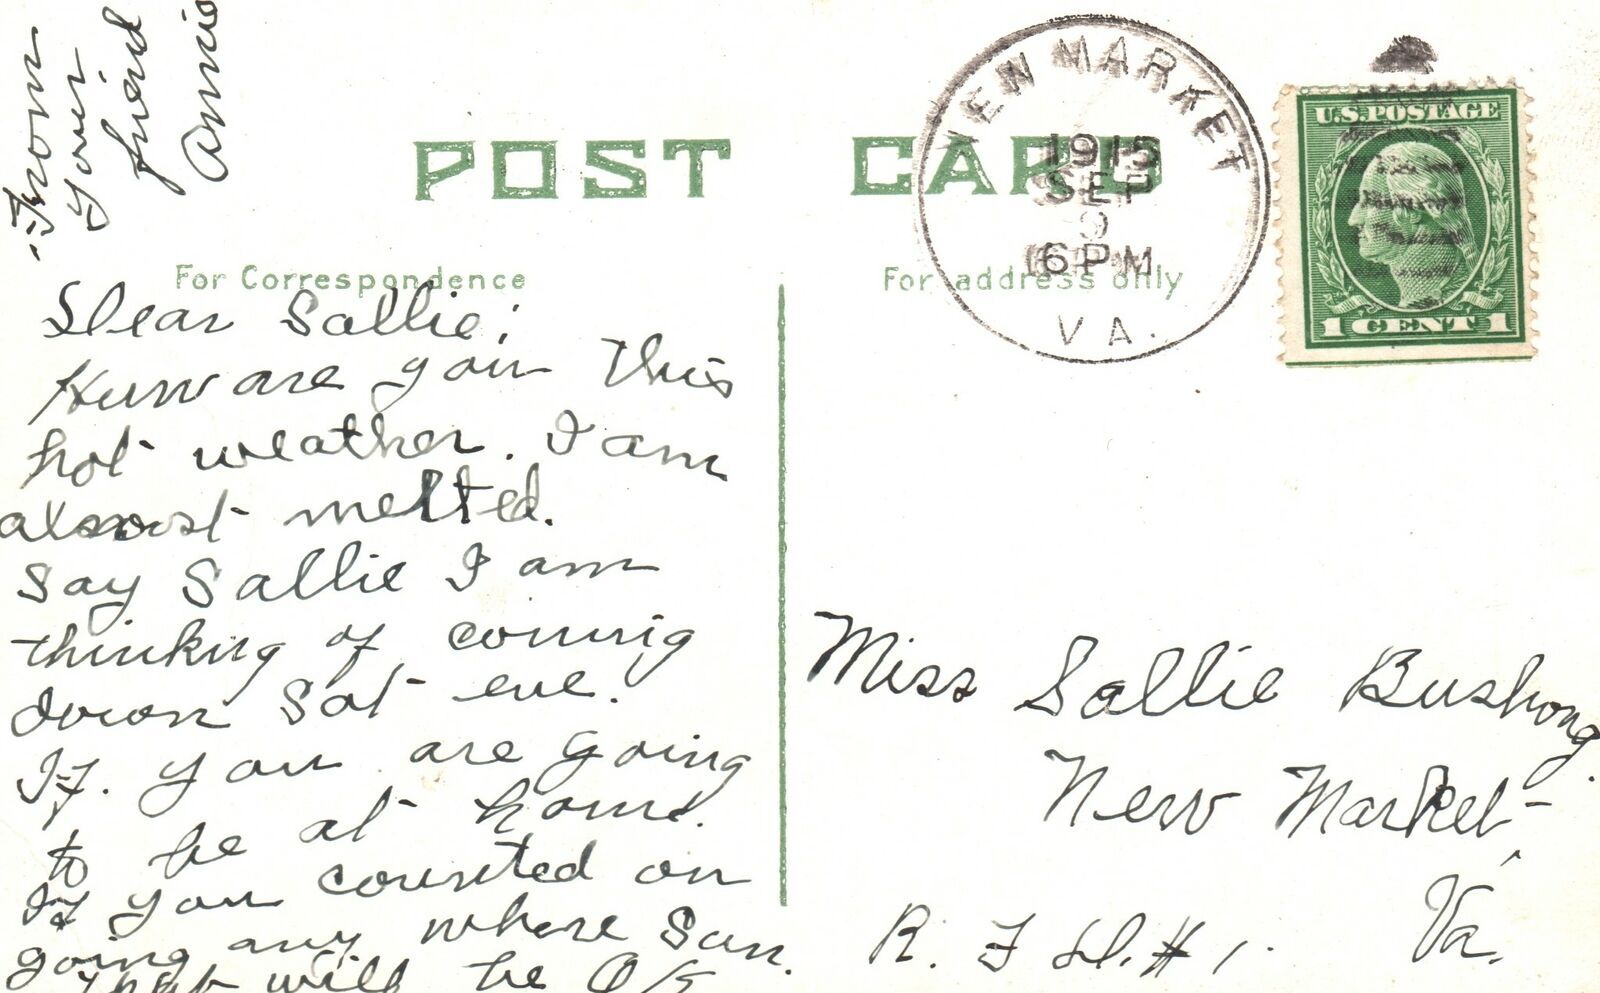 POST CARD
For Correspondence
For address only
NEW MARKET
1915
SEP
9
6 PM
VA.
U.S. POSTAGE
1 CENT 1
Dear Sallie;
How are you this
hot weather. I am
almost melted.
Say Sallie I am
thinking of coming
down Sat eve.
If you are going
to be at home.
If you counted on
going any where Sun.
that will be O/S
From
your
friend
Annie
Miss Sallie Bushong.
New Market
Va.
R. F. D. # 1.